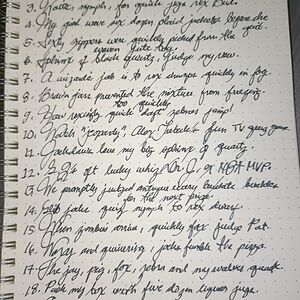 3. Waltz, nymph, for quick jigs vex Bud.
4. My girl wove six dozen plaid jackets before she quit.
5. Sixty zippers were quickly picked from the
woven jute bag.
6. Sphinx of black quartz, judge my vow.
7. A wizard's job is to vex chumps quickly in fog.
8. fans prevented the mixture from freezing.
9. How vexingly quick daft zebras jump!
10. Watch "Jeopardy", Alex Trebek's fun TV quiz game.
11. Jackdaws love my big sphinx of quartz.
12. get lucky Dr. J, or NOT MVP
13. He promptly judged antique ivory buckles
for the next prize.
14. Glib jocks quiz nymph to vex dwarf.
15. When zombies arrive, quickly fax Judge Pat.
16. and quivering, jocks fumble the pizza.
17. The jay, pig, fox, zebra and my wolves quack.
18. Pack my box with five dozen liquor jugs.